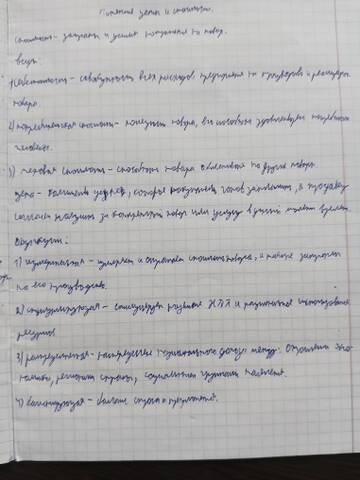 Понятие цены и стоимости.
Стоимость - затраты и усилия потраченные на товар.
Виды:
1) Себестоимость - совокупность всех расходов предприятия на производство и реализацию
товара.
2) потребительская стоимость - полезность товара, его способность удовлетворять потребности
человека.
3) меновая стоимость - способность товара обмениваться на другие товары.
Цена - количество денег, которое покупатель готов заплатить, а продавец
согласен получить за конкретный товар или услугу в данный момент времени.
Функции:
1) измерительная - измеряет и стоимость товара, а также затраты
на его производство.
2) стимулирующая - развитие НТП и рациональное использование
ресурсов
3) распределительная - распределение национального дохода между: отраслями эко
номики, регионами страны, социальными группами населения.
4) балансирующая - баланс спроса и предложения.